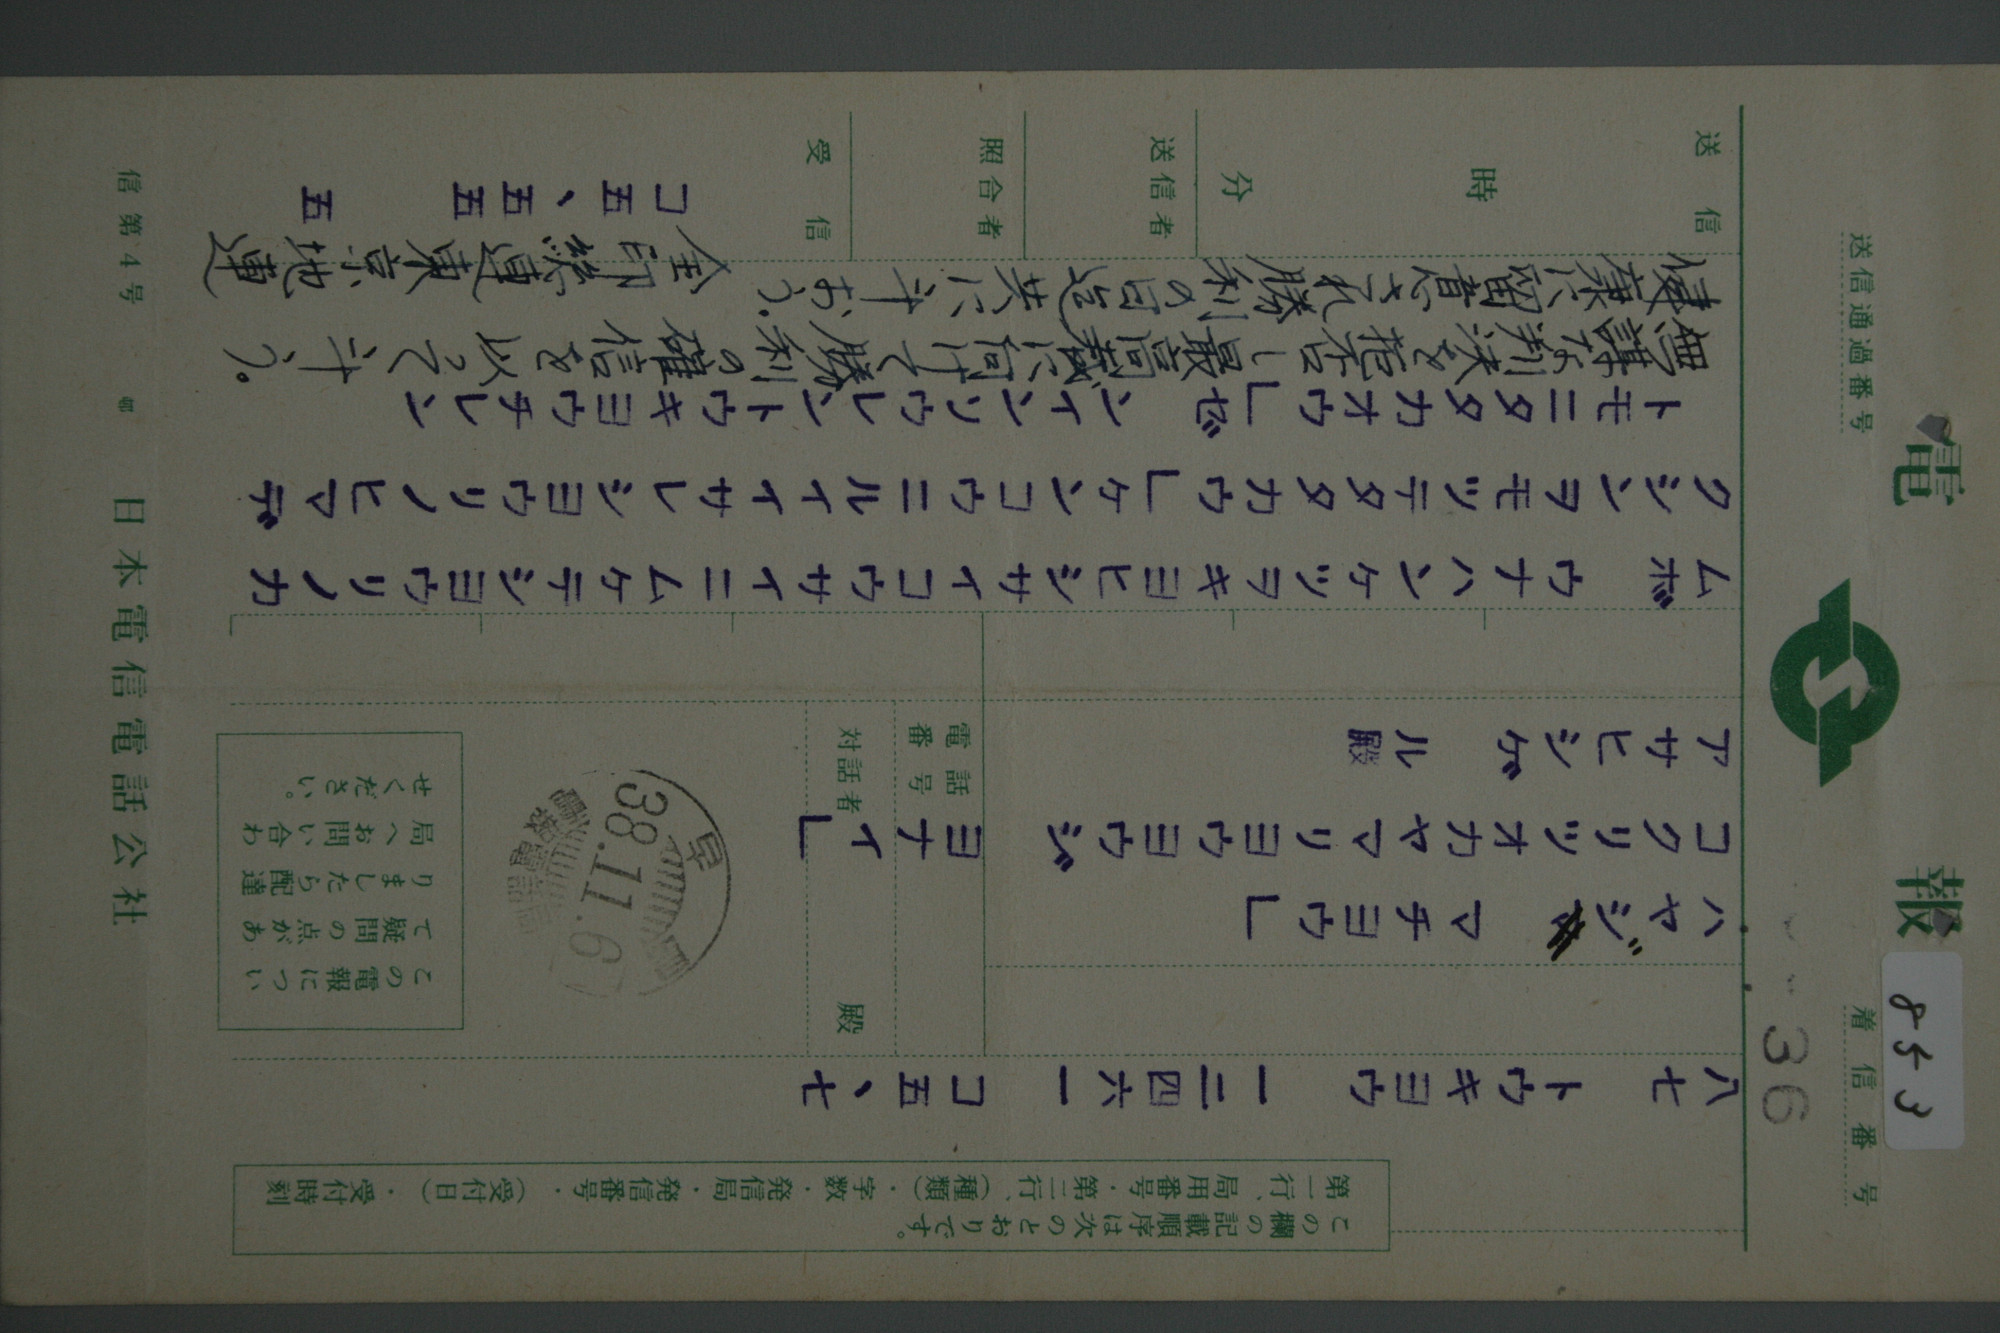 電報
送信通過番号
着信番号
853
36
この欄の記載順序は次のとおりです。
第一行、局用番号・第二行、(種類)・字数・発信局・発信番号・(受付日)・受付時刻
八七 トウキヨウ 一二四六一 コ五、七
ハヤジマ マチヨウ」
コクリツオカヤマリヨウヨウジヨナイ」
アサヒシゲル殿
電話番号
対話者 殿
早島
38.11.6
この電報につい
て疑問の点があ
りましたら配達
局へお問い合わ
せください。
ムボウナハンケツヲキヨヒシサイコウサイニムケテシヨウリノカ
クシンヲモツテタタカウ」ケンコウニルイイサレシヨウリノヒマデ
トモニタタカオウ」ゼンインソウレントウキヨウチレン
無謀な判決を拒否し最高裁に向けて勝利の確信を以って斗う。
健康に留意され勝利の日迄共に斗おう。(全印総連東京地連)
コ五、五五 五
送信 時 分
送信者
照合者
受信
信第4号 日本電信電話公社